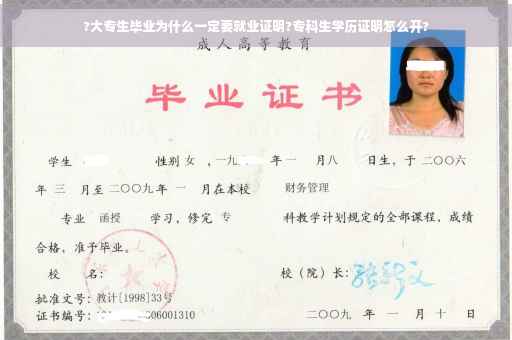 ?大专生毕业为什么一定要就业证明?专科生学历证明怎么开?
成人高等教育
毕业证书
学生 性别 女 ，一九 年一 月八 日生，于二〇〇六
年 三 月至二〇〇九年 一 月在本校 财务管理
专业 函授 学习，修完 专 科教学计划规定的全部课程，成绩
合格，准予毕业。
校 名： 校（院）长：
批准文号：教计[1998]33号
证书编号： 06001310 二〇〇九 年 一 月 十 日